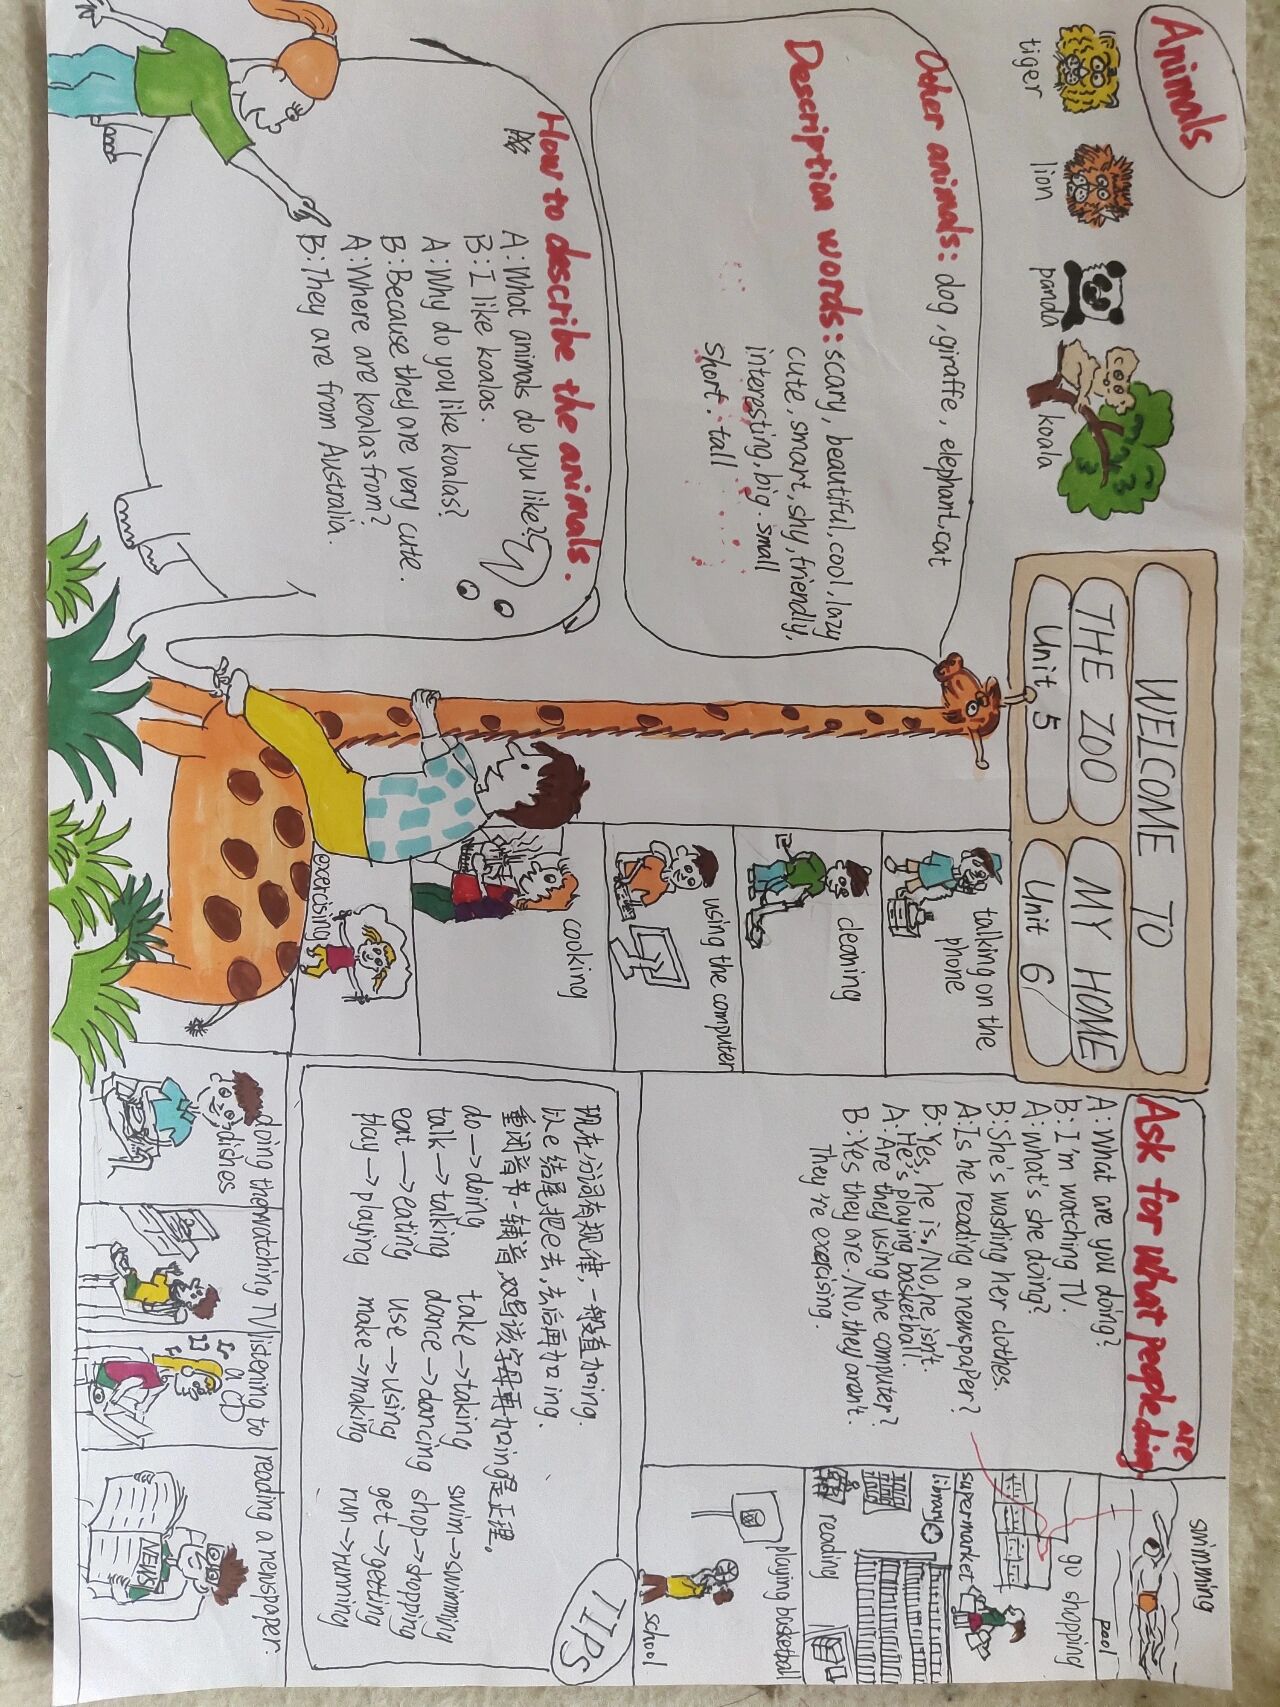 Animals
tiger
lion
panda
koala
Other animals: dog, giraffe, elephant, cat
Description words: scary, beautiful, cool, lazy
cute, smart, shy, friendly,
interesting, big. small
short. tall
How to describe the animals.
A: What animals do you like?
B: I like koalas.
A: Why do you like koalas?
B: Because they are very cute.
A: Where are koalas from?
B: They are from Australia.
WELCOME TO
THE ZOO
MY HOME
Unit 5
Unit 6
talking on the
phone
cleaning
using the computer
cooking
exercising
Ask for what people are doing
A: What are you doing?
B: I'm watching TV.
A: What's she doing?
B: She's washing her clothes.
A: Is he reading a newspaper?
B: Yes, he is./No, he isn't.
He's playing basketball.
A: Are they using the computer?
B: Yes they are./No, they aren't.
They're exercising.
swimming
pool
go shopping
supermarket
library
reading
playing basketball
school
TIPS
现在分词有规律，一般直加ing.
以e结尾把e去，去后再加ing.
重闭音节一辅音，双写该字母再加ing是正理。
do→doing take→taking swim→swimming
talk→talking dance→dancing shop→shopping
eat→eating use→using get→getting
play→playing make→making run→running
doing the
dishes
watching TV
listening to
a CD
reading a newspaper.
NEWS